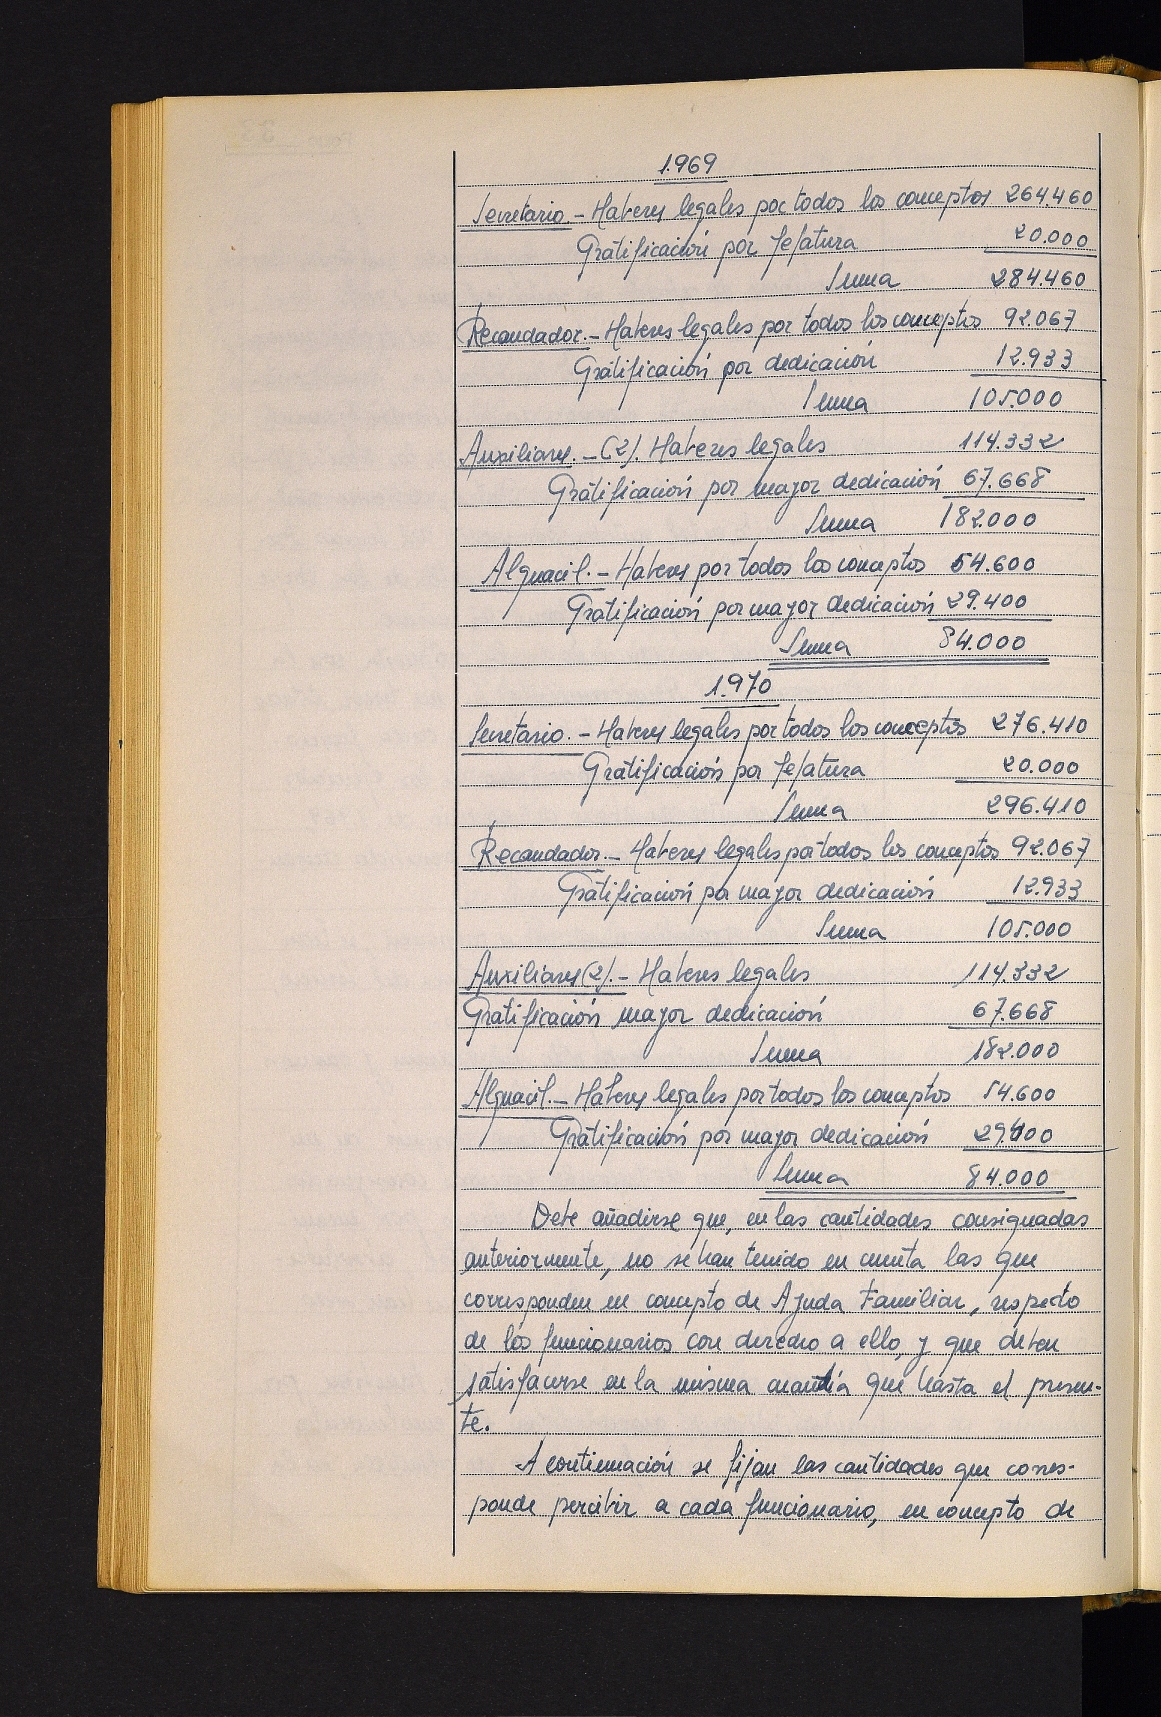 1.969
Secretario.- Haberes legales por todos los conceptos 264.460
Gratificación por Jefatura 20.000
Suma 284.460
Recaudador.- Haberes legales por todos los conceptos 92.067
Gratificación por dedicación 12.933
Suma 105.000
Auxiliares.-(2). Haberes legales 114.332
Gratificación por mayor dedicación 67.668
Suma 182.000
Alguacil.- Haberes por todos los conceptos 54.600
Gratificación por mayor dedicación 29.400
Suma 84.000
1.970
Secretario.- Haberes legales por todos los conceptos 276.410
Gratificación por Jefatura 20.000
Suma 296.410
Recaudador.- Haberes legales por todos los conceptos 92.067
Gratificación por mayor dedicación 12.933
Suma 105.000
Auxiliares(2).- Haberes legales 114.332
Gratificación mayor dedicación 67.668
Suma 182.000
Alguacil.- Haberes legales por todos los conceptos 54.600
Gratificación por mayor dedicación 29.400
Suma 84.000
Debe añadirse que, en las cantidades consignadas
anteriormente, no se han tenido en cuenta las que
corresponden en concepto de Ayuda Familiar, respecto
de los funcionarios con derecho a ello, y que deben
satisfacerse en la misma cuantía que hasta el presen-
te.
A continuación se fijan las cantidades que corres-
ponde percibir a cada funcionario, en concepto de